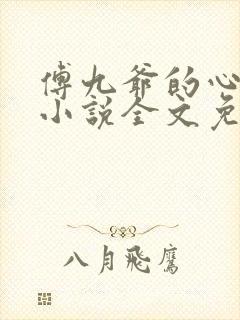 傅九爷的心
小说全文免
八月飛鷹